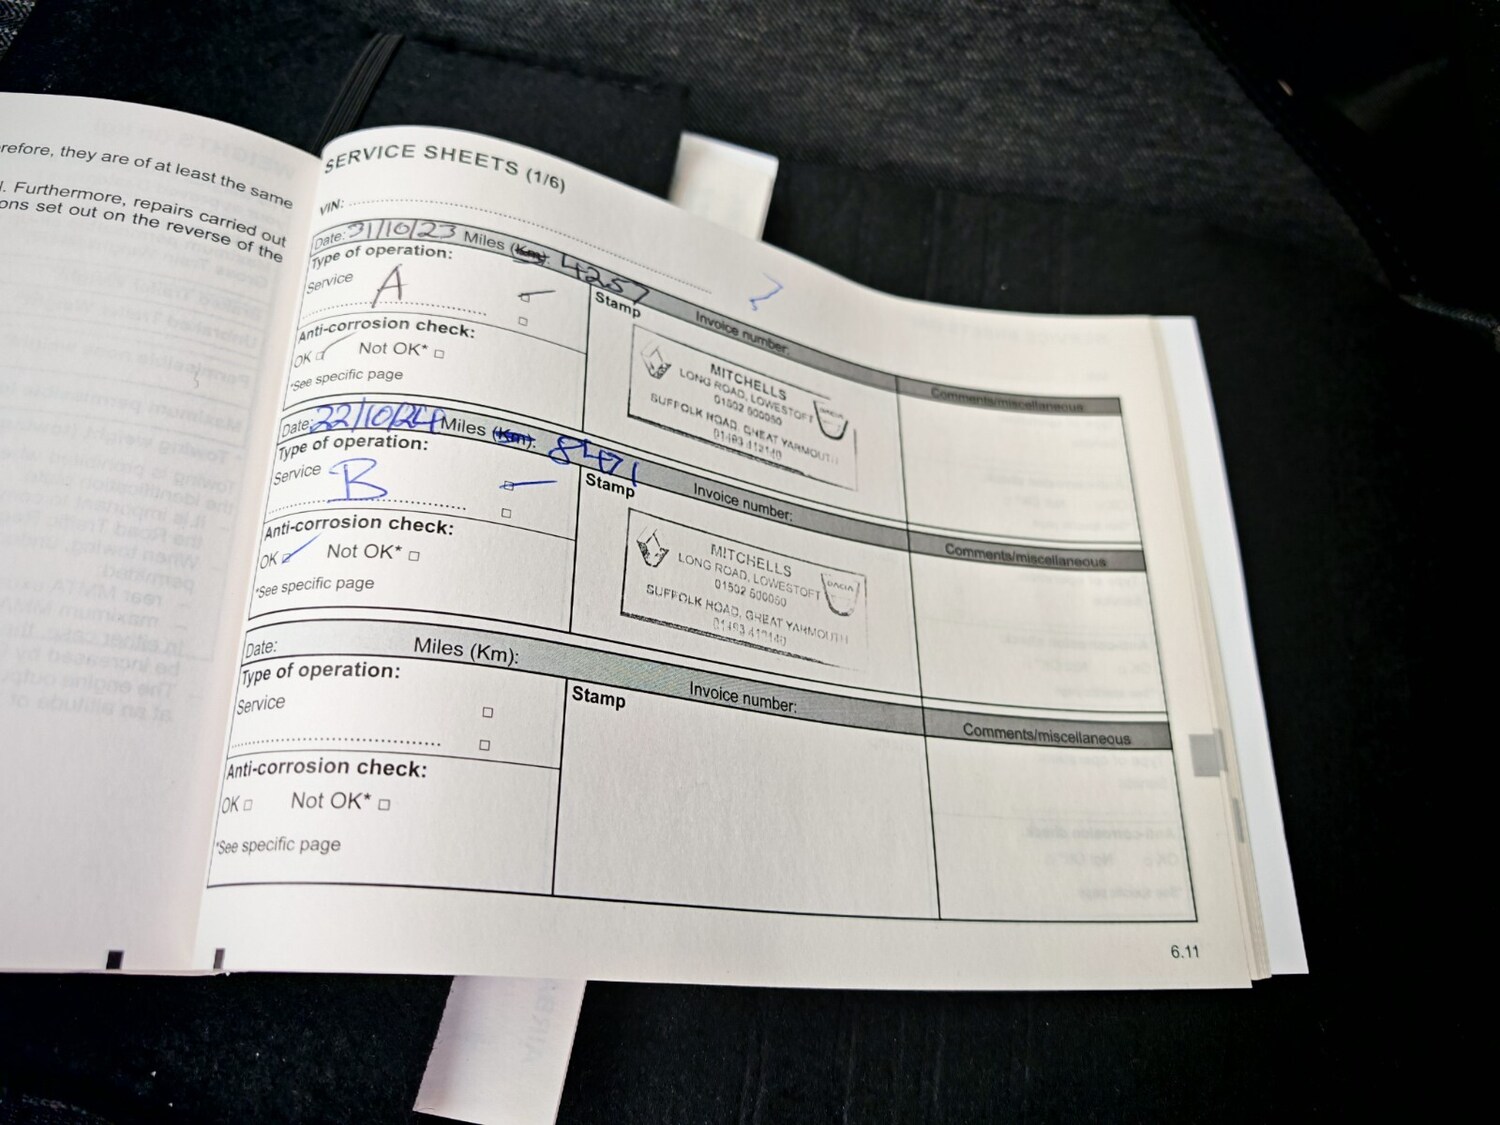 refore, they are of at least the same
l. Furthermore, repairs carried out
ons set out on the reverse of the
SERVICE SHEETS (1/6)
VIN:
Date: 31/10/23 Miles (Km): 4257 Invoice number: Comments/miscellaneous
Type of operation:
Service A
Stamp
Anti-corrosion check:
OK Not OK*
*See specific page
MITCHELLS
LONG ROAD, LOWESTOFT
01502 500050
DACIA
SUFFOLK ROAD, GREAT YARMOUTH
Date: 22/10/24 Miles (Km): 8471 Invoice number: Comments/miscellaneous
Type of operation:
Service B
Stamp
Anti-corrosion check:
OK Not OK*
*See specific page
MITCHELLS
LONG ROAD, LOWESTOFT
01502 500050
DACIA
SUFFOLK ROAD, GREAT YARMOUTH
Date: Miles (Km): Invoice number: Comments/miscellaneous
Type of operation:
Service
Stamp
Anti-corrosion check:
OK Not OK*
*See specific page
6.11